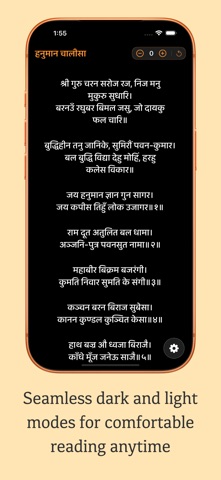 1:55
हनुमान चालीसा
0
श्री गुरु चरन सरोज रज, निज मनु
मुकुरु सुधारि।
बरनउँ रघुबर बिमल जसु, जो दायकु
फल चारि॥
बुद्धिहीन तनु जानिके, सुमिरौं पवन-कुमार।
बल बुद्धि विद्या देहु मोहिं, हरहु
कलेस विकार॥
जय हनुमान ज्ञान गुन सागर।
जय कपीस तिहुँ लोक उजागर॥१॥
राम दूत अतुलित बल धामा।
अञ्जनि-पुत्र पवनसुत नामा॥२॥
महाबीर बिक्रम बजरंगी।
कुमति निवार सुमति के संगी॥३॥
कञ्चन बरन बिराज सुबेसा।
कानन कुण्डल कुञ्चित केसा॥४॥
हाथ बज्र औ ध्वजा बिराजै।
काँधे मूँज जनेऊ साजै॥५॥
Seamless dark and light
modes for comfortable
reading anytime